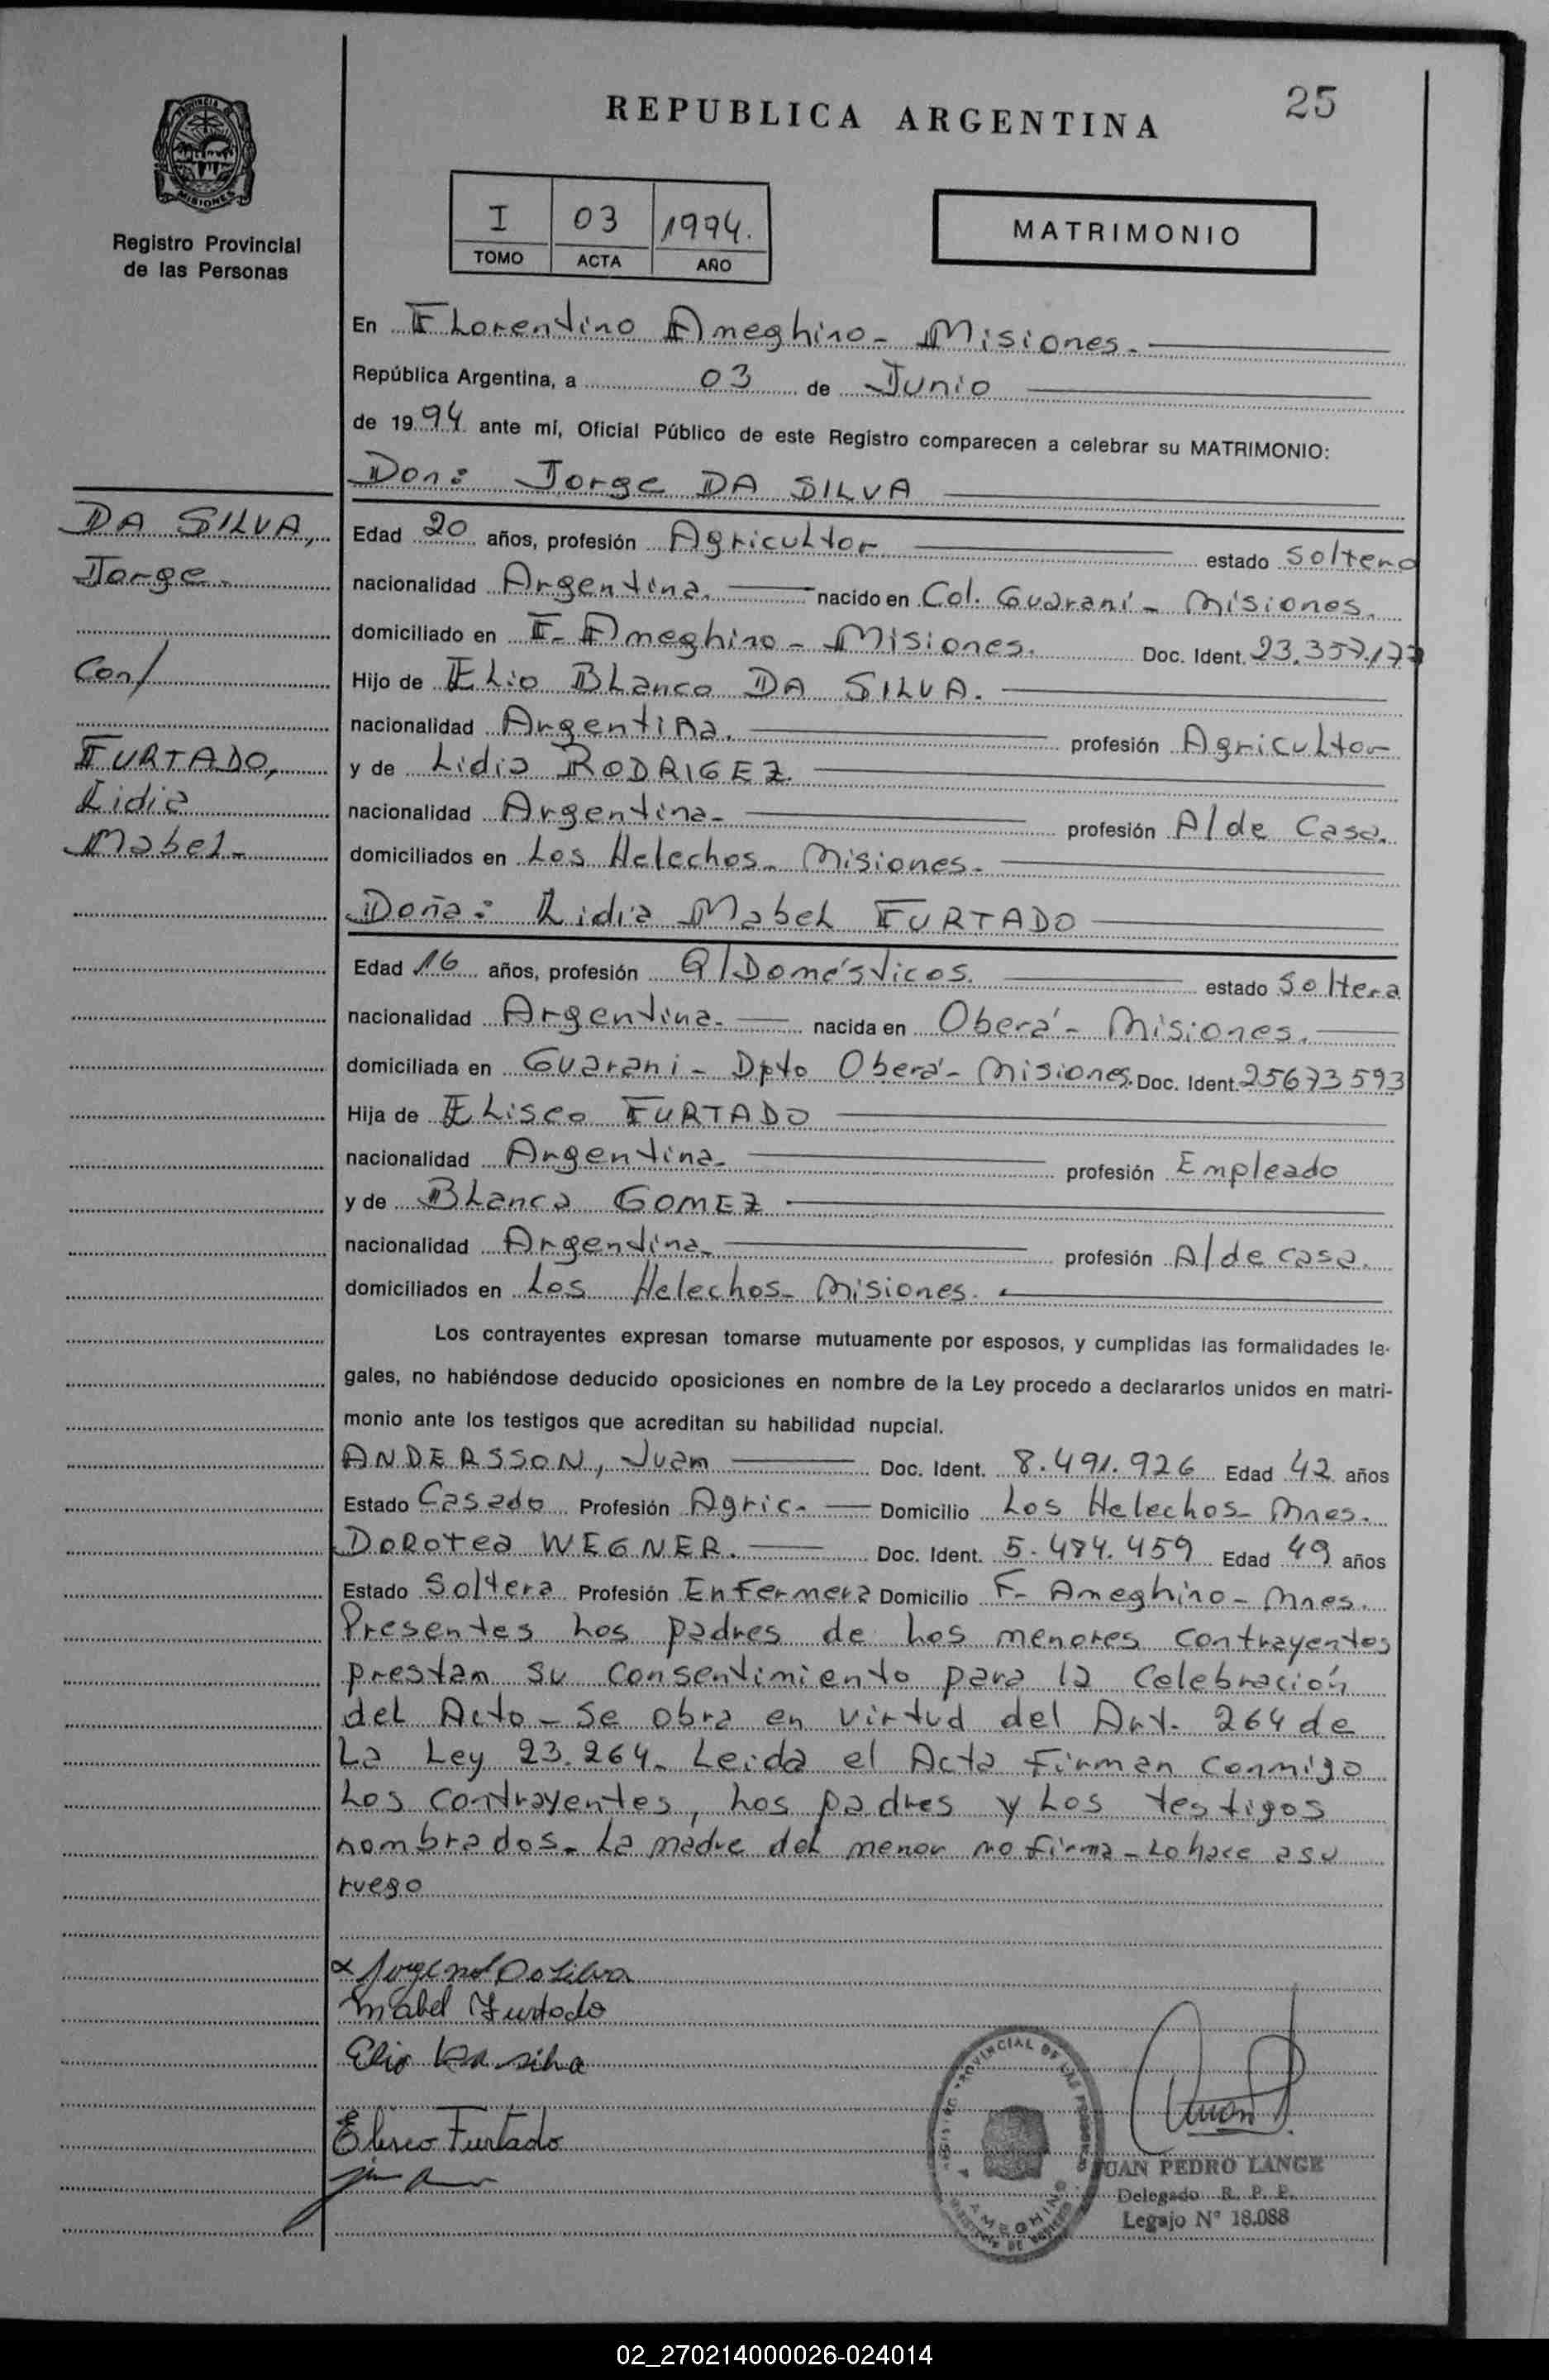 25
REPUBLICA ARGENTINA
PROVINCIA DE
MISIONES
Registro Provincial
de las Personas
I 03 1994.
TOMO ACTA AÑO
MATRIMONIO
En Florentino Ameghino - Misiones.
República Argentina, a 03 de Junio
de 1994 ante mí, Oficial Público de este Registro comparecen a celebrar su MATRIMONIO:
Don: Jorge DA SILVA
DA SILVA,
Jorge.
Con/
FURTADO,
Lidia
Mabel.
Edad 20 años, profesión Agricultor estado Soltero
nacionalidad Argentina. nacido en Col. Guaraní - Misiones.
domiciliado en F. Ameghino - Misiones. Doc. Ident. 23.357.177
Hijo de Elio Blanco DA SILVA.
nacionalidad Argentina. profesión Agricultor
y de Lidia RODRIGEZ.
nacionalidad Argentina. profesión A/de Casa.
domiciliados en Los Helechos - Misiones.
Doña: Lidia Mabel FURTADO
Edad 16 años, profesión Q/Domésticos. estado Soltera
nacionalidad Argentina. nacida en Oberá - Misiones.
domiciliada en Guarani - Dpto Oberá - Misiones. Doc. Ident. 25673593
Hija de Eliseo FURTADO
nacionalidad Argentina. profesión Empleado
y de Blanca GOMEZ
nacionalidad Argentina. profesión A/de casa.
domiciliados en Los Helechos - Misiones.
Los contrayentes expresan tomarse mutuamente por esposos, y cumplidas las formalidades le-
gales, no habiéndose deducido oposiciones en nombre de la Ley procedo a declararlos unidos en matri-
monio ante los testigos que acreditan su habilidad nupcial.
ANDERSSON, Juam Doc. Ident. 8.491.926 Edad 42 años
Estado Casado Profesión Agric. Domicilio Los Helechos - Mnes.
Dorotea WEGNER. Doc. Ident. 5.484.459 Edad 49 años
Estado Soltera Profesión Enfermera Domicilio F. Ameghino - Mnes.
Presentes los padres de los menores contrayentes
prestam su consentimiento para la Celebración
del Acto - Se obra en virtud del Art. 264 de
La Ley 23.264. Leida el Acta firman conmigo
los contrayentes, los padres y los testigos
nombrados. La madre del menor no firma - Lo hace a su
ruego
Mabel Furtado
Elio Da silva
Eliseo Furtado
JUAN PEDRO LANGE
Delegado R. P. P.
Legajo N° 18.088
02_270214000026-024014